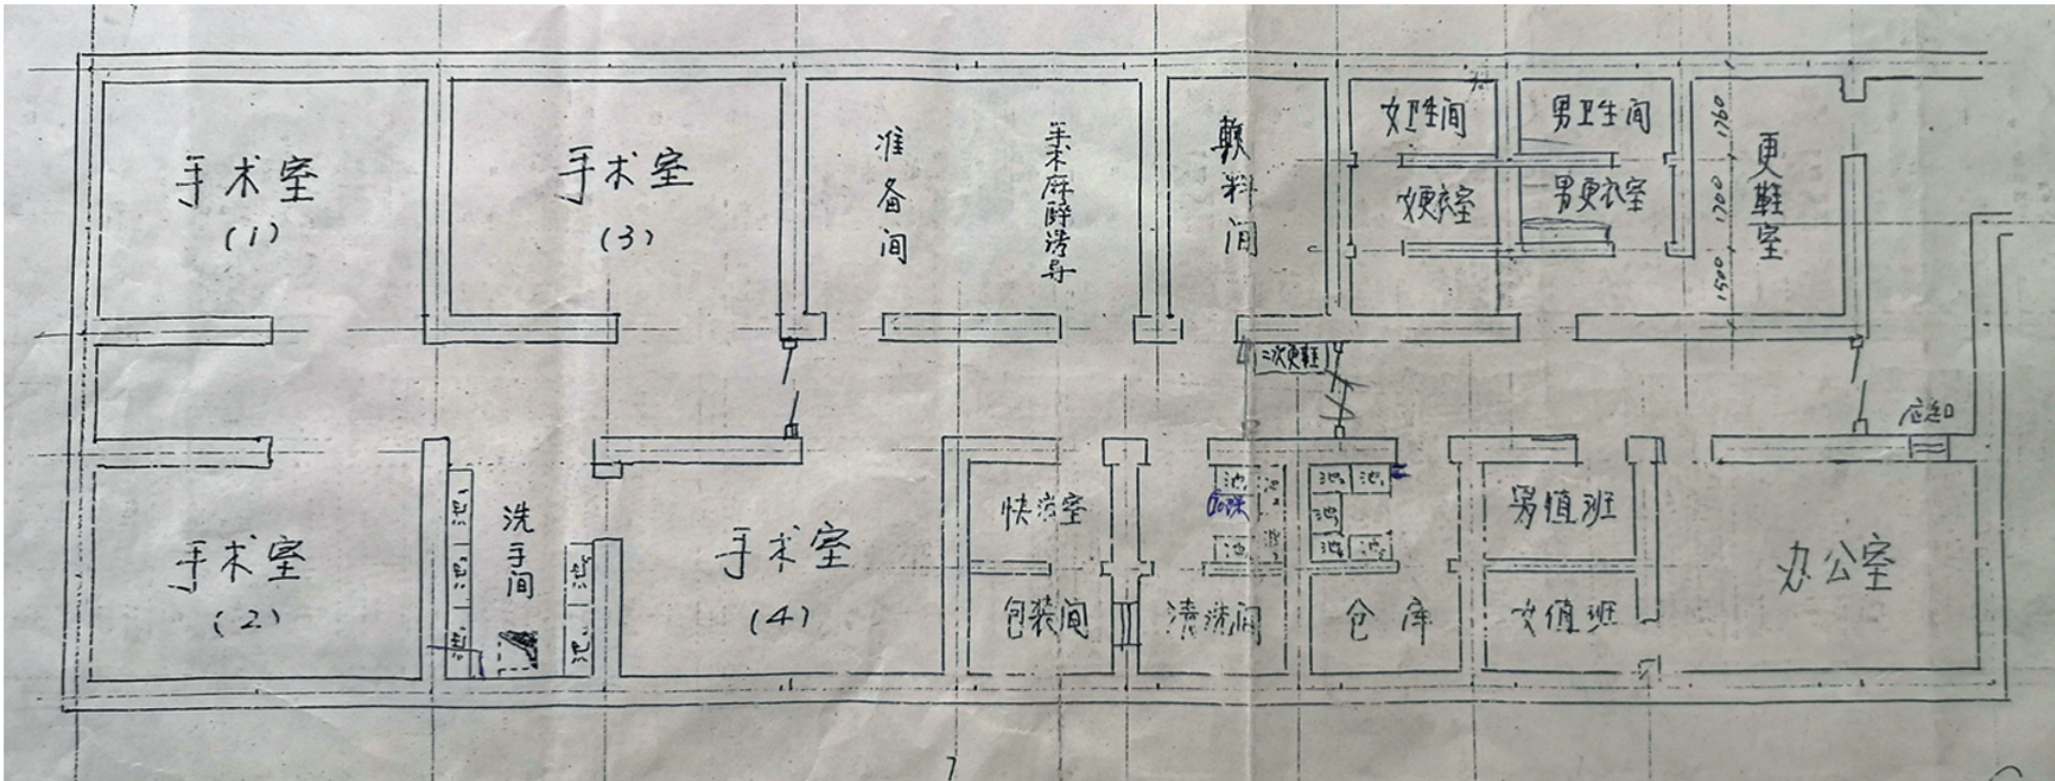 手术室
(1)
手术室
(3)
准备间
麻醉诱导
敷料间
女卫生间
男卫生间
女更衣室
男更衣室
更鞋室
1760
1700
1500
二次更鞋
手术室
(2)
洗手间
手术室
(4)
快消室
包装间
清洗间
池
池
池
池
仓库
男值班
女值班
办公室